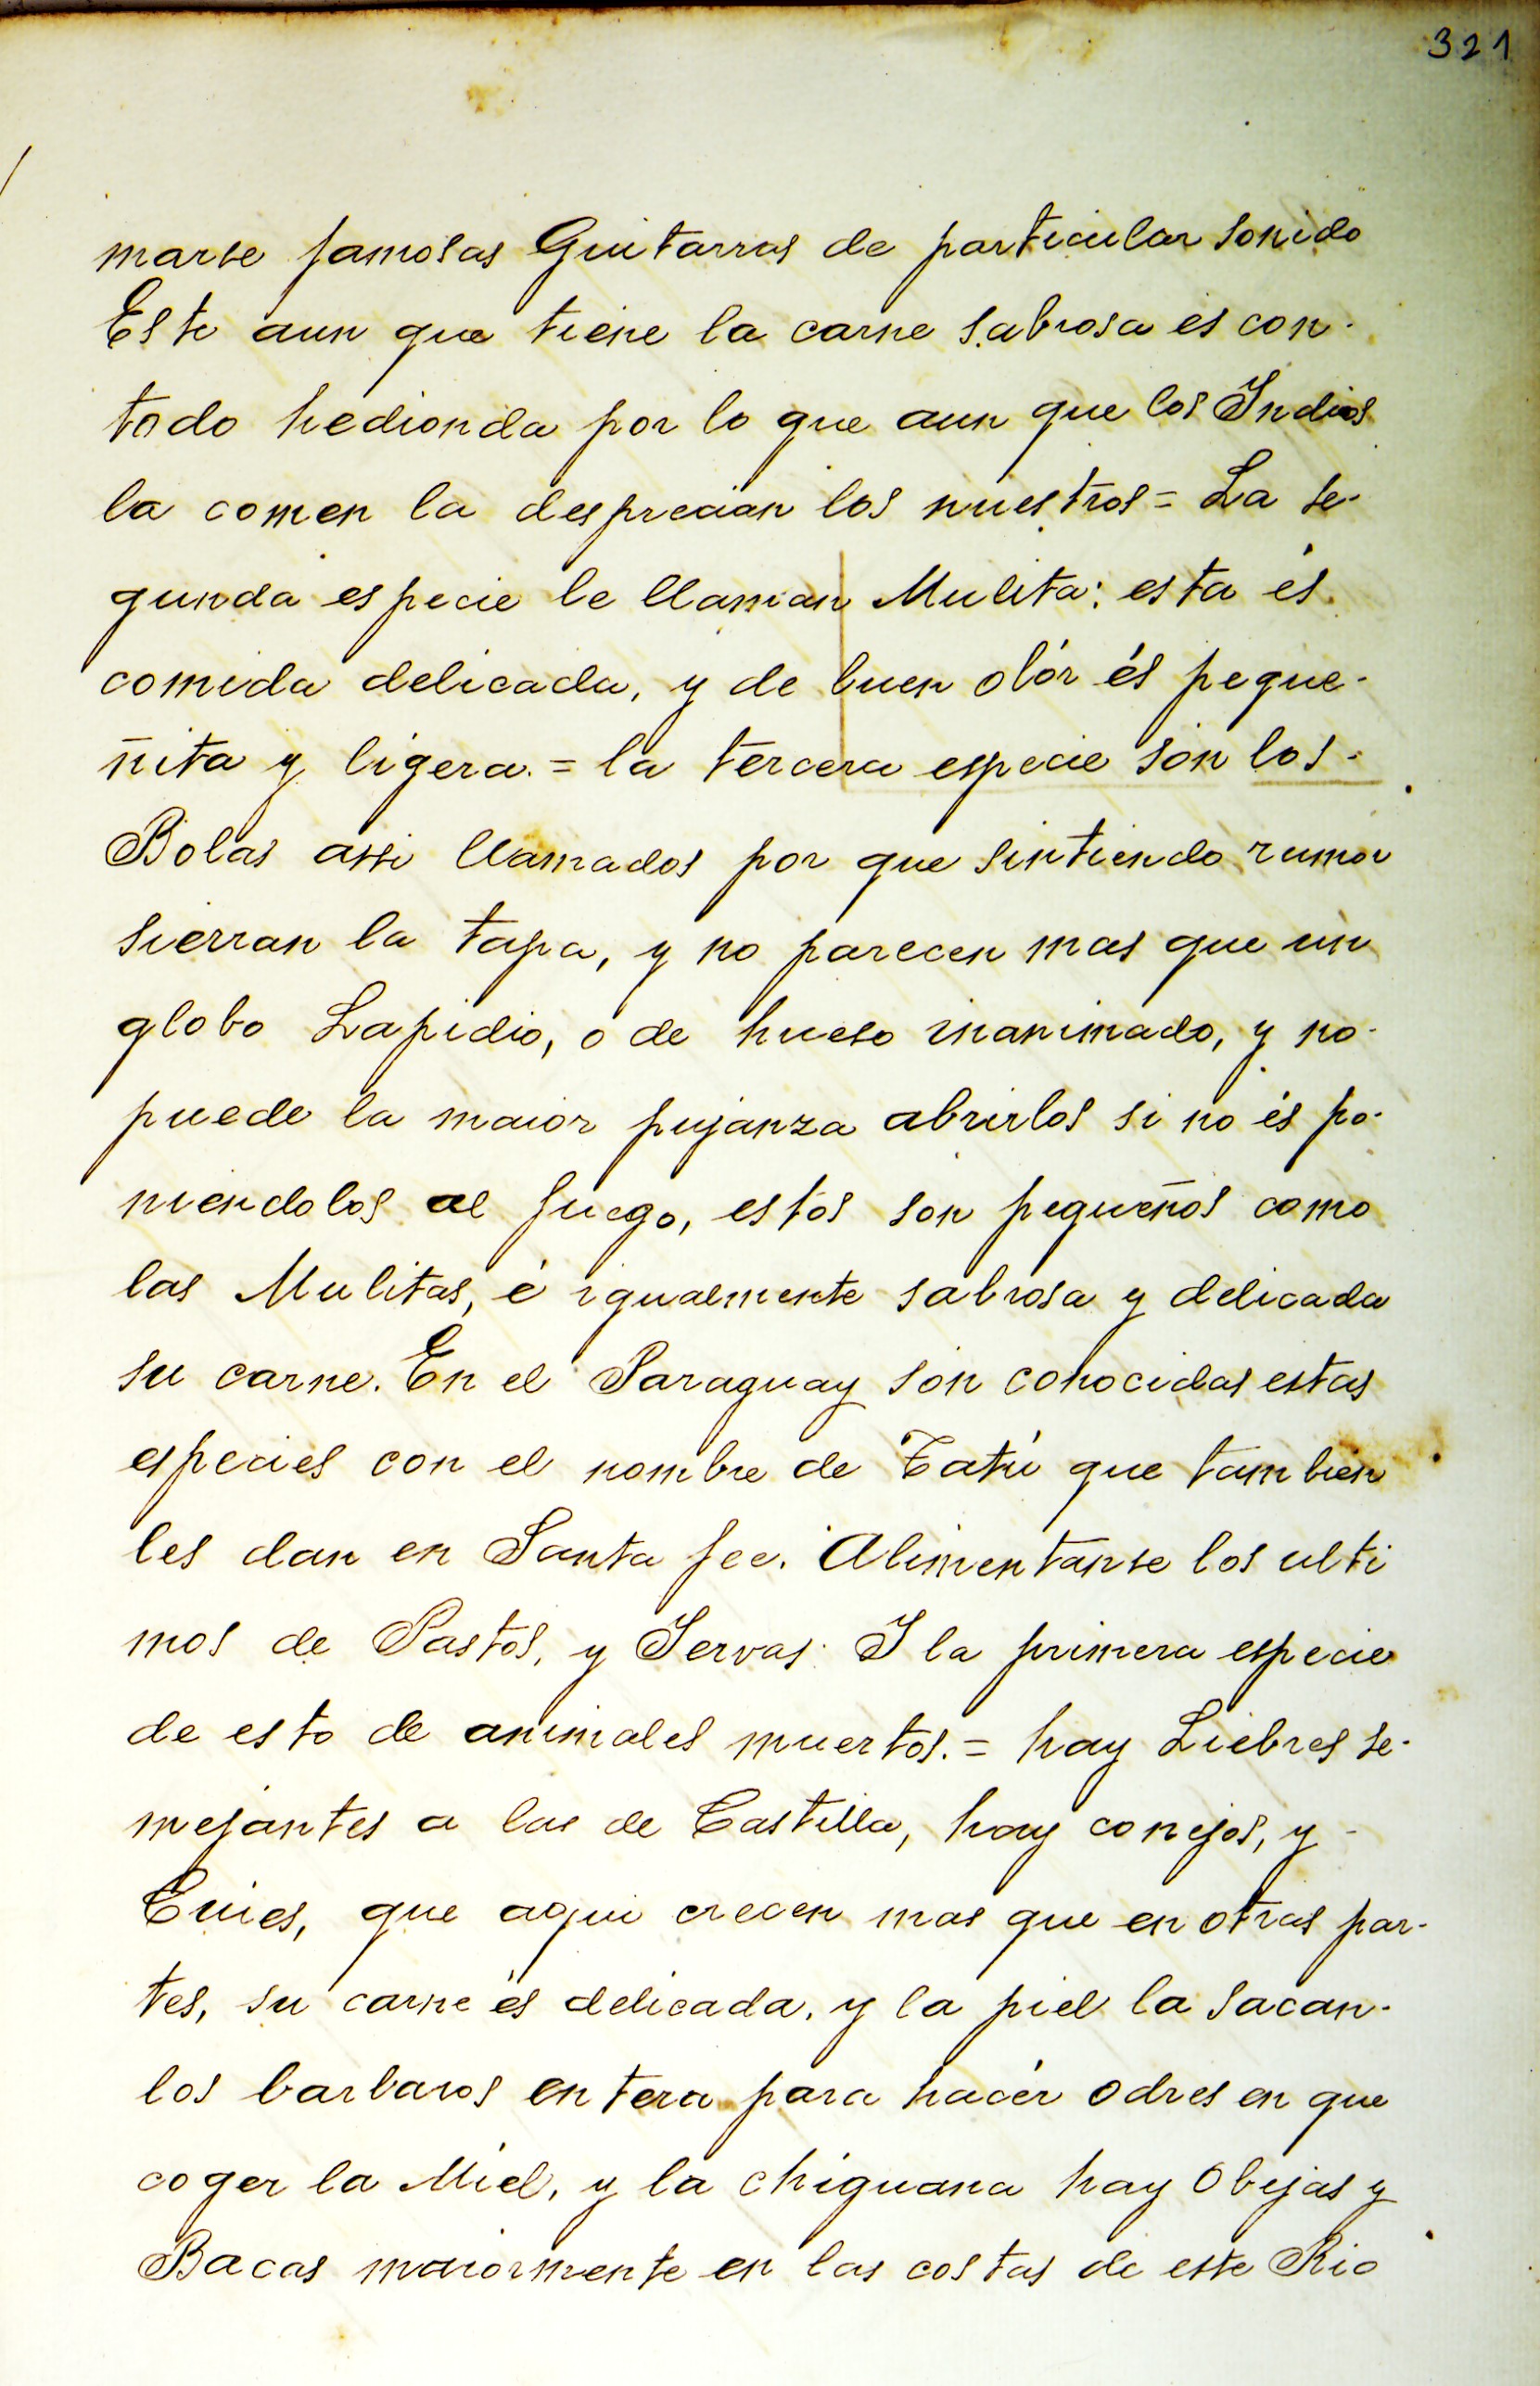 321
marse famosas Guitarras de particular sonido
Este aun que tiene la carne sabrosa es con-
todo hedionda por lo que aun que los Indios
la comen la desprecian los nuestros = La se-
gunda especie le llaman Mulita: esta és
comida delicada, y de buen olór és peque-
ñita y ligera. = la tercera especie són los-
Bolas assi llamados por que sintiendo rumor
sierran la tapa, y no parecen mas que un
globo Lapidio, o de hueso inanimado, y no-
puede la maior pujanza abrirlos si no és po-
niendolos al fuego, estos son pequeños como
las Mulitas, é igualmente sabrosa y delicada
su carne. En el Paraguay són conocidas estas
especies con el nombre de Tatú que tambien
les dan en Santa fee. Alimentanse los ulti
mos de Pastos, y Iervas. I la primera especie
de esto de animales muertos. = hay Liebres se-
mejantes a las de Castilla, hay conejos, y -
Cuies, que aqui crecen mas que en otras par-
tes, su carne és delicada, y la piel la sacan-
los barbaros entera para hacér odres en que
coger la Miel, y la chiguana hay Obejas y
Bacas maiormente en las costas de este Rio